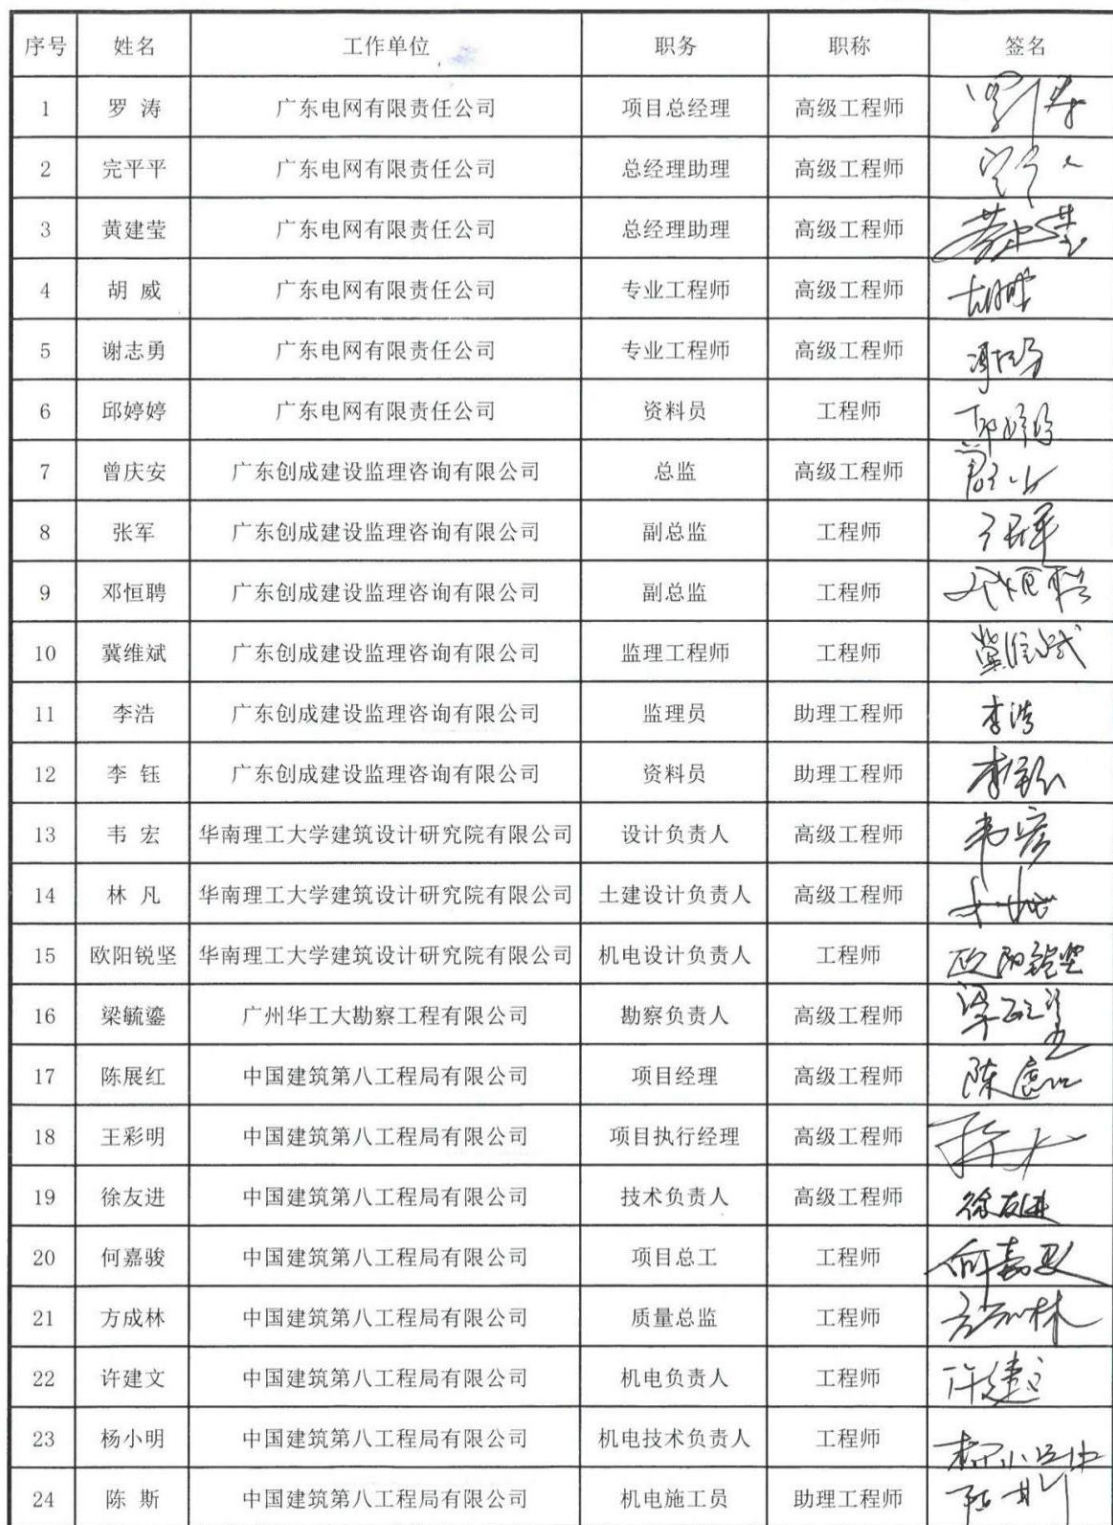 序号 姓名 工作单位 职务 职称 签名
1 罗 涛 广东电网有限责任公司 项目总经理 高级工程师
2 完平平 广东电网有限责任公司 总经理助理 高级工程师
3 黄建莹 广东电网有限责任公司 总经理助理 高级工程师
4 胡 威 广东电网有限责任公司 专业工程师 高级工程师
5 谢志勇 广东电网有限责任公司 专业工程师 高级工程师
6 邱婷婷 广东电网有限责任公司 资料员 工程师
7 曾庆安 广东创成建设监理咨询有限公司 总监 高级工程师
8 张军 广东创成建设监理咨询有限公司 副总监 工程师
9 邓恒聘 广东创成建设监理咨询有限公司 副总监 工程师
10 冀维斌 广东创成建设监理咨询有限公司 监理工程师 工程师
11 李浩 广东创成建设监理咨询有限公司 监理员 助理工程师 李浩
12 李 钰 广东创成建设监理咨询有限公司 资料员 助理工程师
13 韦 宏 华南理工大学建筑设计研究院有限公司 设计负责人 高级工程师
14 林 凡 华南理工大学建筑设计研究院有限公司 土建设计负责人 高级工程师
15 欧阳锐坚 华南理工大学建筑设计研究院有限公司 机电设计负责人 工程师 欧阳锐坚
16 梁毓鎏 广州华工大勘察工程有限公司 勘察负责人 高级工程师
17 陈展红 中国建筑第八工程局有限公司 项目经理 高级工程师
18 王彩明 中国建筑第八工程局有限公司 项目执行经理 高级工程师
19 徐友进 中国建筑第八工程局有限公司 技术负责人 高级工程师 徐友进
20 何嘉骏 中国建筑第八工程局有限公司 项目总工 工程师
21 方成林 中国建筑第八工程局有限公司 质量总监 工程师
22 许建文 中国建筑第八工程局有限公司 机电负责人 工程师 许建文
23 杨小明 中国建筑第八工程局有限公司 机电技术负责人 工程师
24 陈 斯 中国建筑第八工程局有限公司 机电施工员 助理工程师